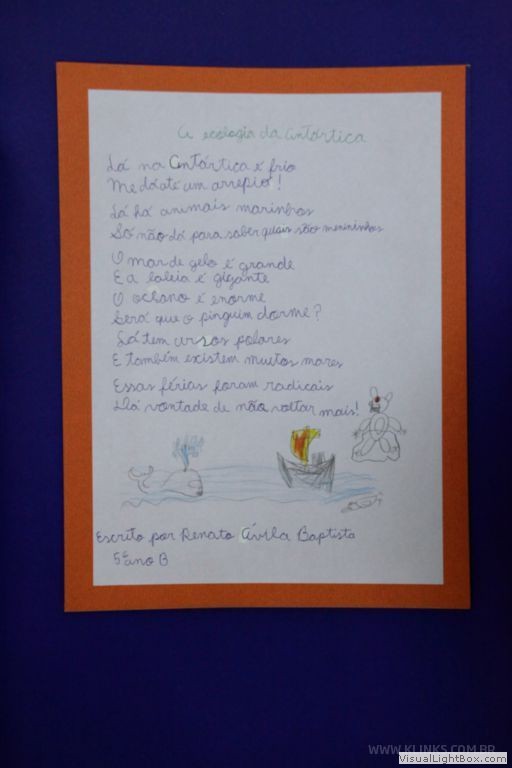 A ecologia da Antártica
Lá na Antártica é frio
Me dá até um arrepio!
Lá há animais marinhos
Só não dá para saber quais são menininhos
O mar de gelo é grande
E a baleia é gigante
O oceano é enorme
Será que o pinguim dorme?
Lá tem ursos polares
E também existem muitos mares
Essas férias foram radicais
Dá vontade de não voltar mais!
Escrito por Renato Ávila Baptista
5º ano B
WWW.KLINKS.COM.BR
VisualLightBox.com